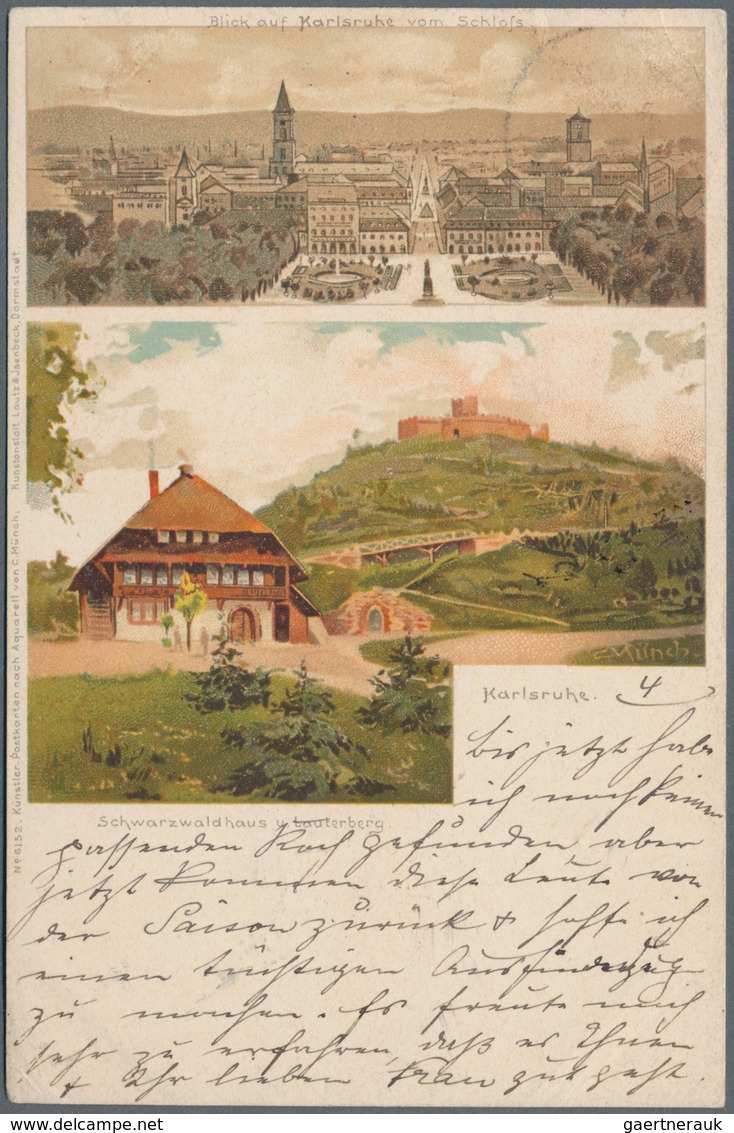 Blick auf Karlsruhe vom Schloſs
No 6152. Künstler-Postkarten nach Aquarell von C. Münch. Kunstanstalt Lautz & Jsenbeck, Darmstadt.
C Münch.
Karlsruhe. 4
Schwarzwaldhaus u. Lauterberg.
bis jetzt habe
ich noch keinen
passenden Koch gefunden aber
jetzt kommen diese Leute von
der Saison zurück + hoffe ich
einen tüchtigen
zu machen. Es freute mich
sehr zu erfahren, daß es Ihnen
+ Ihr lieben Frau gut geht.
gaertnerauk